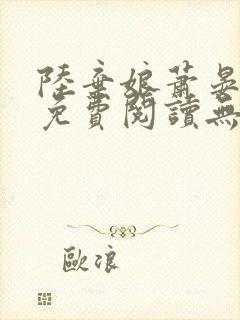 陸棄娘蕭晏
免費閱讀無
歐浪